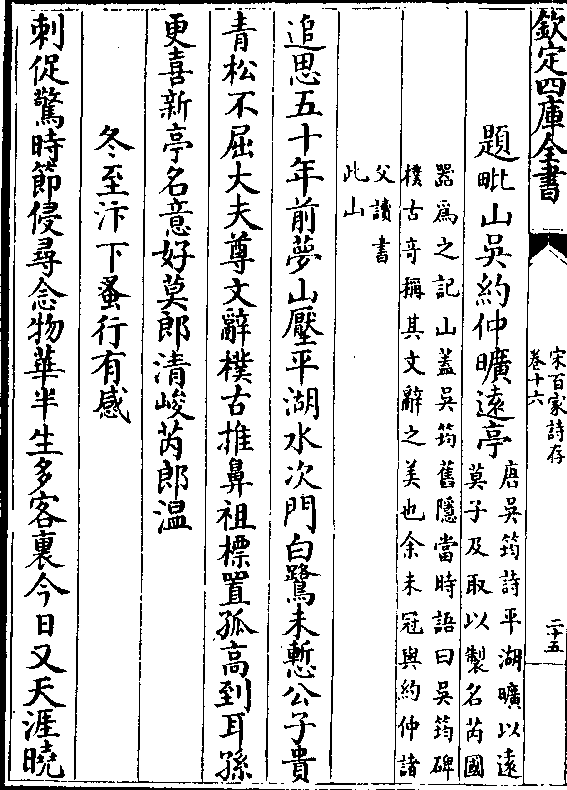 欽定四庫全書
宋百家詩存
卷十六
二十五
題毗山吳約仲曠遠亭
唐吳筠詩平湖曠以遠
莫子及取以製名芮國
噐爲之記山蓋吳筠舊隱當時語曰吳筠碑
樸古竒稱其文辭之美也余未冠與約仲諸
父讀書
此山
追思五十年前夢山壓平湖水次門白鷺未慙公子貴
青松不屈大夫尊文辭樸古推鼻祖標置孤高到耳孫
更喜新亭名意好莫郎清峻芮郎温
冬至汴下蚤行有感
刺促驚時節侵尋念物華半生多客裏今日又天涯曉